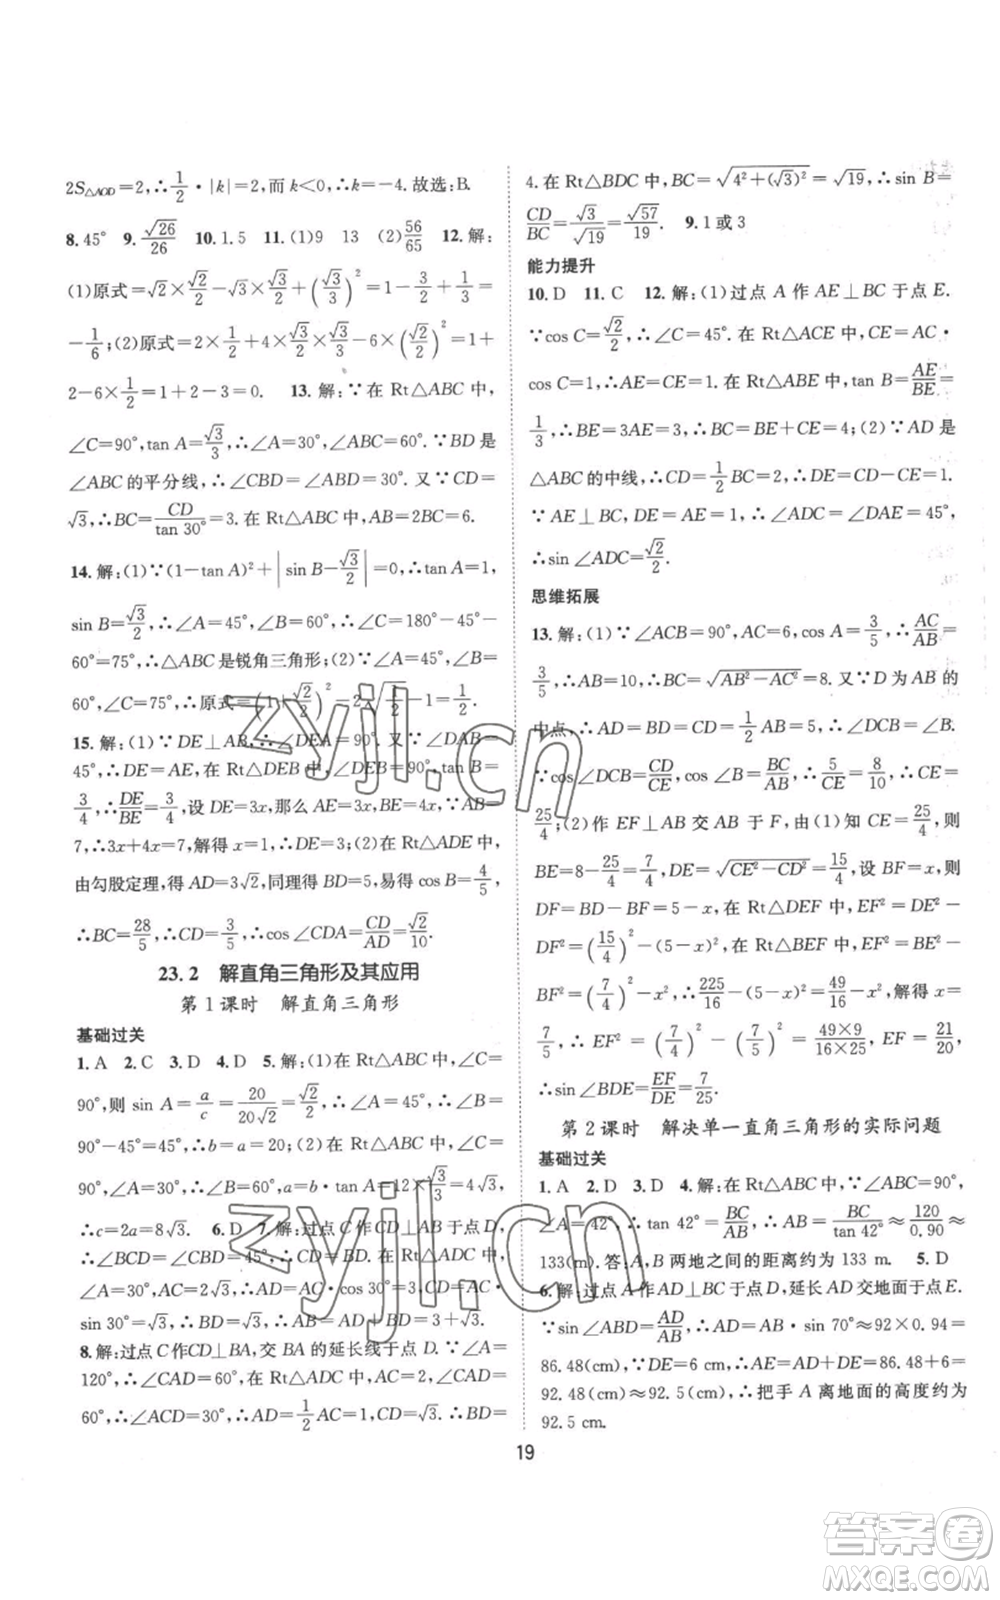 2S△AOD=2,∴1/2·|k|=2,而 k<0,∴k=-4. 故选:B.
8. 45° 9. √26/26 10. 1.5 11. (1)9 13 (2)56/65 12. 解:
(1)原式=√2×√2/2-√3×√3/2+(√3/3)²=1-3/2+1/3=
-1/6;(2)原式=2×1/2+4×√3/2×√3/3-6×(√2/2)²=1+
2-6×1/2=1+2-3=0. 13. 解:∵在 Rt△ABC 中,
∠C=90°,tan A=√3/3,∴∠A=30°,∠ABC=60°.∵BD 是
∠ABC 的平分线,∴∠CBD=∠ABD=30°. 又∵CD=
√3,∴BC=CD/tan 30°=3. 在 Rt△ABC 中,∴AB=2BC=6.
14. 解:(1)∵(1-tan A)²+|sin B-√3/2|=0,∴tan A=1,
sin B=√3/2,∴∠A=45°,∠B=60°,∴∠C=180°-45°-
60°=75°,∴△ABC 是锐角三角形;(2)∵∠A=45°,∠B=
60°,∠C=75°,∴原式=(1+√2/2)²-2√1/2-1=1/2.
15. 解:(1)∵DE⊥AB,∴∠DEA=90°. 又∵∠DAB=
45°,∴DE=AE,在 Rt△DEB 中,∠DEB=90°,tan B=
3/4,∴DE/BE=3/4,设 DE=3x,那么 AE=3x,BE=4x,∵AB=
7,∴3x+4x=7,∴x=1,∴DE=3,∵在 Rt△ADE 中,
由勾股定理,得 AD=3√2,同理得 BD=5,易得 cos B=4/5,
∴BC=28/5,∴CD=3/5,∴cos∠CDA=CD/AD=√2/10.
23.2 解直角三角形及其应用
第 1 课时 解直角三角形
基础过关
1. A 2. C 3. D 4. D 5. 解:(1)在 Rt△ABC 中,∠C=
90°,则 sin A=a/c=20/20√2=√2/2,∴∠A=45°,∴∠B=
90°-45°=45°,∴b=a=20;(2)在 Rt△ABC 中,∠C=
90°,∠A=30°,∴∠B=60°,a=b·tan A=12×√3/3=4√3,
∴c=2a=8√3. 6. D 7. 解:过点 C 作 CD⊥AB 于点 D,
∴∠BCD=∠CBD=45°,∴CD=BD. 在 Rt△ACD 中,
∵∠A=30°,AC=2√3,∴AD=AC·cos 30°=3,CD=AC·
sin 30°=√3,∴BD=CD=√3,∴AB=AD+BD=3+√3.
8. 解:过点 C 作CD⊥BA,交 BA 的延长线于点 D. ∵∠A=
120°,∴∠CAD=60°. 在 Rt△ADC 中,∵∠CAD=
60°,∴∠ACD=30°,∴AD=1/2AC=1,CD=√3. ∴BD=
4. 在 Rt△BDC 中,BC=√4²+(√3)²=√19,∴sin B=
CD/BC=√3/√19=√57/19. 9. 1 或 3
能力提升
10. D 11. C 12. 解:(1)过点 A 作 AE⊥BC 于点 E.
∵cos C=√2/2,∴∠C=45°. 在 Rt△ACE 中,CE=AC·
cos C=1,∴AE=CE=1. 在 Rt△ABE 中,tan B=AE/BE=
1/3,∴BE=3AE=3,∴BC=BE+CE=4;(2)∵AD 是
△ABC 的中线,∴CD=1/2BC=2,∴DE=CD-CE=1.
∵AE⊥BC,DE=AE=1,∴∠ADC=∠DAE=45°,
∴sin∠ADC=√2/2.
思维拓展
13. 解:(1)∵∠ACB=90°,AC=6,cos A=3/5,∴AC/AB=
3/5,∴AB=10,∴BC=√AB²-AC²=8. 又∵D 为 AB 的
中点,∴AD=BD=CD=1/2AB=5,∴∠DCB=∠B.
∵cos∠DCB=CD/CE,cos∠B=BC/AB,∴5/CE=8/10,∴CE=
25/4;(2)作 EF⊥AB 交 AB 于 F,由(1)知 CE=25/4,则
BE=8-25/4=7/4,DE=√CE²-CD²=15/4,设 BF=x,则
DF=BD-BF=5-x,在 Rt△DEF 中,EF²=DE²-
DF²=(15/4)²-(5-x)²,在 Rt△BEF 中,EF²=BE²-
BF²=(7/4)²-x²,∴225/16-(5-x)²=49/16-x²,解得 x=
7/5,∴EF²=(7/4)²-(7/5)²=49×9/16×25,∴EF=21/20,
∴sin∠BDE=EF/DE=7/25.
第 2 课时 解决单一直角三角形的实际问题
基础过关
1. A 2. D 3. D 4. 解:在 Rt△ABC 中,∵∠B=90°,
∠A=42°,∴tan 42°=BC/AB,∴AB=BC/tan 42°≈120/0.90≈
133(m). 答:A,B 两地之间的距离约为 133 m. 5. D
6. 解:过点 A 作 AD⊥BC 于点 D,延长 AD 交地面于点 E.
∵sin∠ABD=AD/AB,∴AD=AB·sin 70°≈92×0.94=
86.48(cm);∵DE=6,∴AE=AD+DE=86.48+6=
92.48(cm)≈92.5(cm),∴把手 A 离地面的高度约为
92.5 cm.
19
zyjl.cn
zyjl.cn
答案卷
MXQE.COM